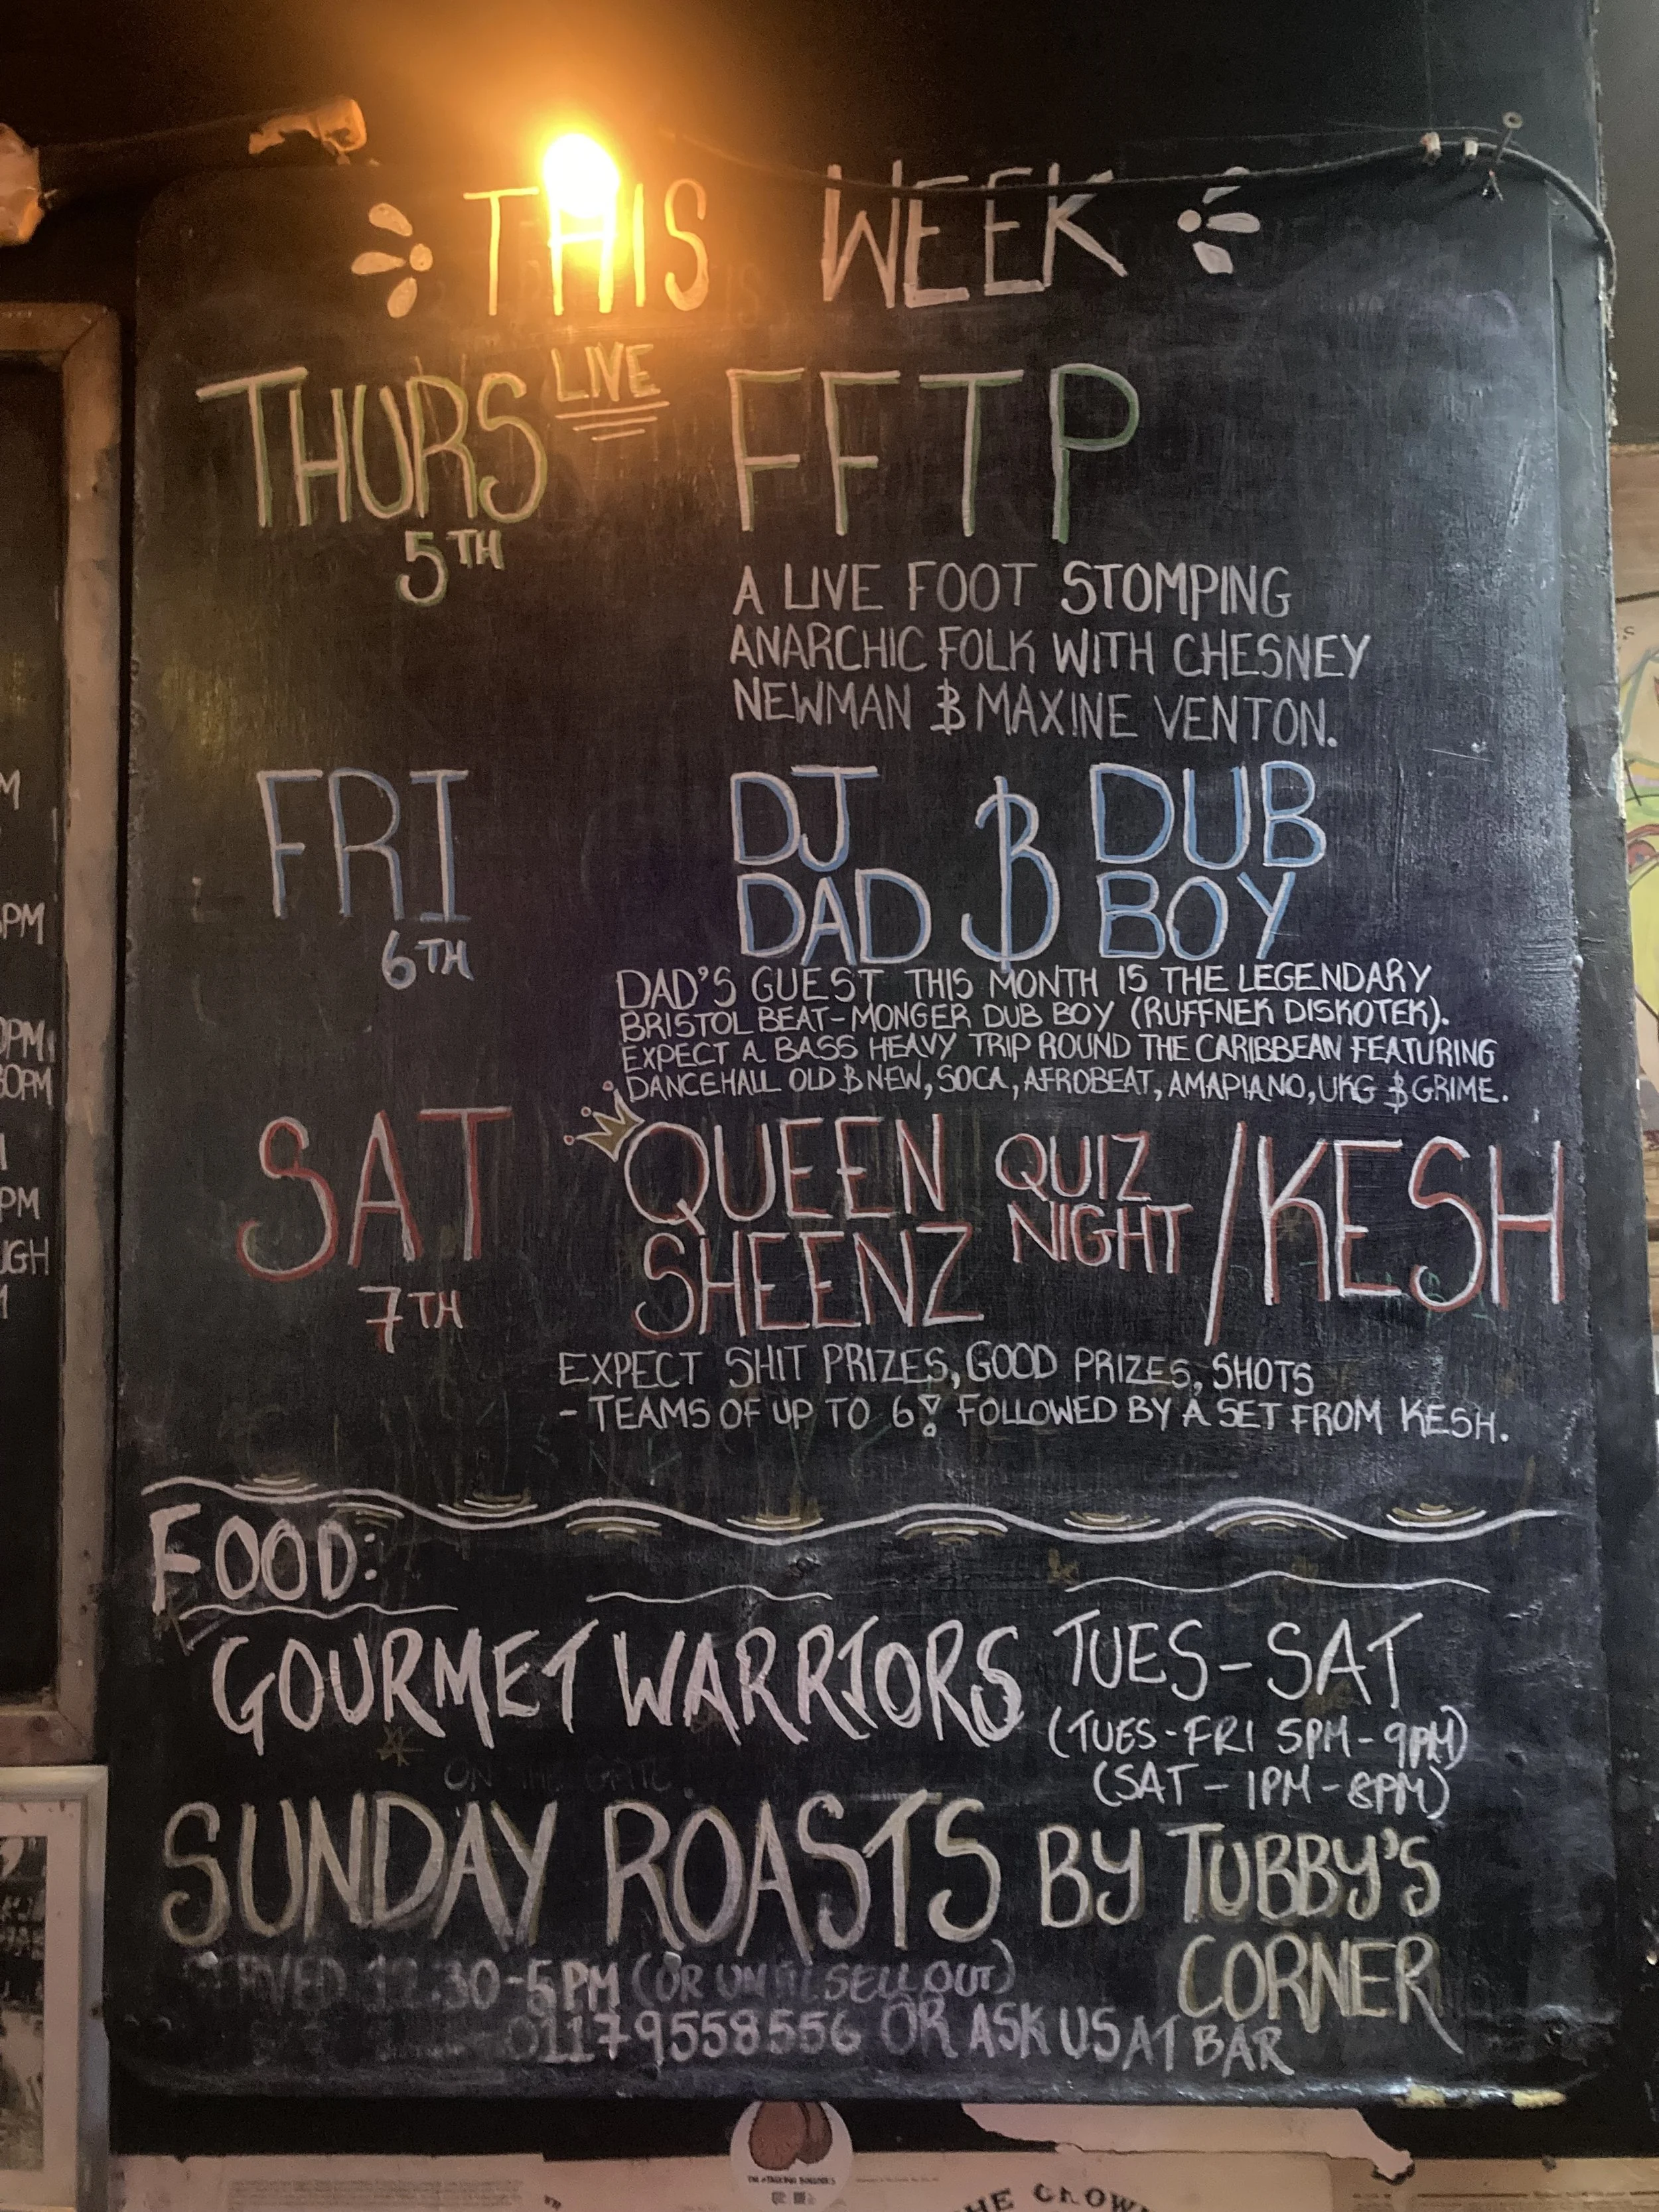 THIS WEEK
THURS LIVE FFTP
5TH
A LIVE FOOT STOMPING
ANARCHIC FOLK WITH CHESNEY
NEWMAN & MAXINE VENTON.
FRI DJ DAD & DUB BOY
6TH
DAD'S GUEST THIS MONTH IS THE LEGENDARY
BRISTOL BEAT-MONGER DUB BOY (RUFFNEK DISKOTEK).
EXPECT A BASS HEAVY TRIP ROUND THE CARIBBEAN FEATURING
DANCEHALL OLD & NEW, SOCA, AFROBEAT, AMAPIANO, UKG & GRIME.
SAT QUEEN SHEENZ QUIZ NIGHT / KESH
7TH
EXPECT SHIT PRIZES, GOOD PRIZES, SHOTS
- TEAMS OF UP TO 6! FOLLOWED BY A SET FROM KESH.
FOOD:
GOURMET WARRIORS TUES-SAT
(TUES-FRI 5PM-9PM)
(SAT - 1PM-8PM)
SUNDAY ROASTS BY TUBBY'S
CORNER
12.30-5PM (OR UNTIL SELL OUT)
01179558556 OR ASK US AT BAR
PM
30PM
PM